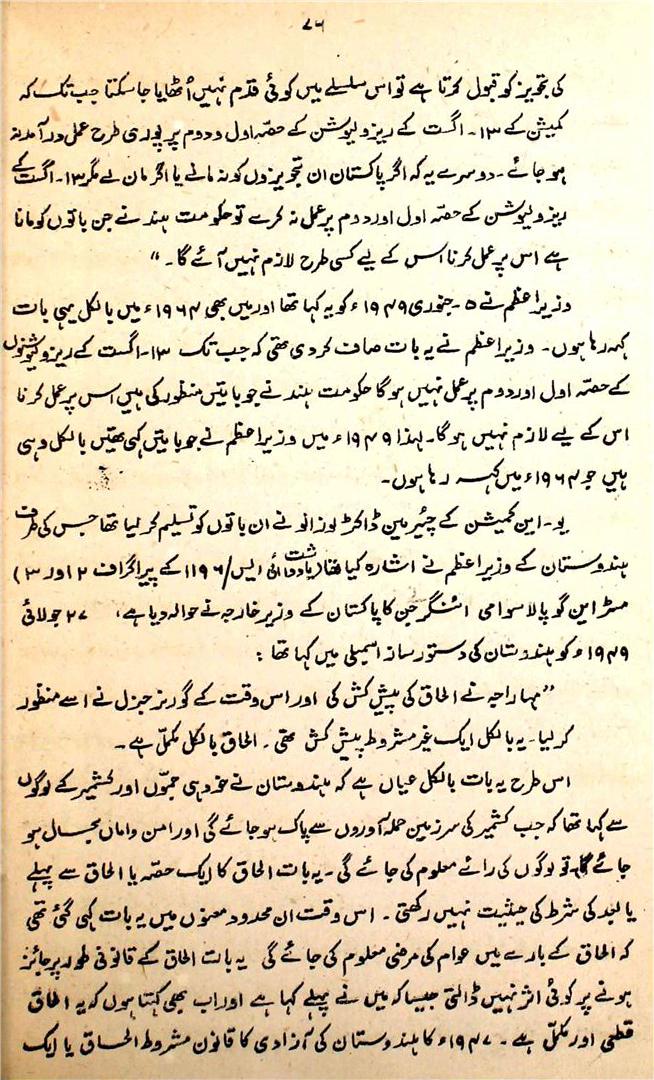 ۷۶
کی تجویز کو قبول کرتا ہے تو اس سلسلے میں کوئی قدم نہیں اُٹھایا جا سکتا جب تک کہ
کمیشن کے ۱۳۔ اگست کے ریزولیوشن کے حصّہ اول و دوم پر پوری طرح عمل در آمد نہ
ہو جائے۔ دوسرے یہ کہ اگر پاکستان ان تجویزوں کو نہ مانے یا اگر مان لے مگر ۱۳۔ اگست کے
ریزولیوشن کے حصّہ اول اور دوم پر عمل نہ کرے تو حکومت ہند نے جن باتوں کو مانا
ہے اس پر عمل کرنا اس کے لیے کسی طرح لازم نہیں آئے گا۔“
وزیراعظم نے ۵۔ جنوری ۱۹۴۹ء کو یہ کہا تھا اور میں بھی ۱۹۶۴ء میں بالکل یہی بات
کہہ رہا ہوں۔ وزیراعظم نے یہ بات صاف کر دی تھی کہ جب تک ۱۳۔ اگست کے ریزولیوشنوں
کے حصّہ اول اور دوم پر عمل نہیں ہوگا حکومت ہند نے جو باتیں منظور کی ہیں اس پر عمل کرنا
اس کے لیے لازم نہیں ہوگا۔ لہذا ۱۹۴۹ء میں وزیراعظم نے جو باتیں کہی تھیں بالکل وہی
ہیں جو ۱۹۶۴ء میں کہہ رہا ہوں۔
یو۔ این کمیشن کے چیئرمین ڈاکٹر لوزانو نے ان باتوں کو تسلیم کر لیا تھا جس کی طرف
ہندوستان کے وزیراعظم نے اشارہ کیا تھا (یادداشت ایس/۱۱۹۶ کے پیراگراف ۲ اور ۳)
مسٹر این گوپالا سوامی ائنگر جن کا پاکستان کے وزیر خارجہ نے حوالہ دیا ہے، ۲۷ جولائی
۱۹۴۹ء کو ہندوستان کی دستور ساز اسمبلی میں کہا تھا :
”مہاراجہ نے الحاق کی پیش کش کی اور اس وقت کے گورنر جنرل نے اسے منظور
کر لیا۔ یہ بالکل ایک غیر مشروط پیش کش تھی۔ الحاق بالکل مکمل ہے۔
اس طرح یہ بات بالکل عیاں ہے کہ ہندوستان نے خود ہی جموں اور کشمیر کے لوگوں
سے کہا تھا کہ جب کشمیر کی سرزمین حملہ آوروں سے پاک ہو جائے گی اور امن و اماں بحال ہو
جائے گا تو لوگوں کی رائے معلوم کی جائے گی۔ یہ بات الحاق کا ایک حصّہ یا الحاق سے پہلے
یا بعد کی شرط کی حیثیت نہیں رکھتی۔ اس وقت ان محدود معنوں میں یہ بات کہی گئی تھی
کہ الحاق کے بارے میں عوام کی مرضی معلوم کی جائے گی یہ بات الحاق کے قانونی طور پر جائز
ہونے پر کوئی اثر نہیں ڈالتی جیسا کہ میں نے پہلے کہا ہے اور اب بھی کہتا ہوں کہ یہ الحاق
قطعی اور مکمل ہے۔ ۱۹۴۷ء کا ہندوستان کی آزادی کا قانون مشروط الحاق یا ایک